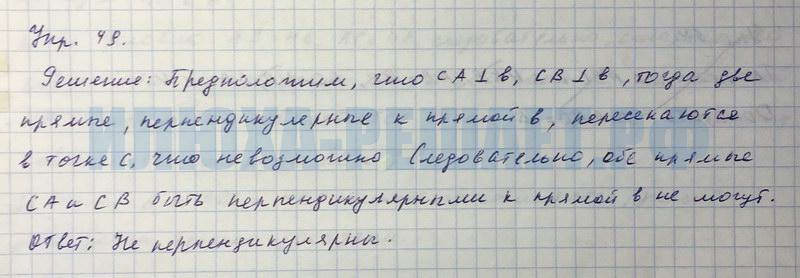 Упр. 49.
Решение: Предположим, что CA⊥b, CB⊥b, тогда две
прямые, перпендикулярные к прямой b, пересекаются
в точке C, что невозможно Следовательно, обе прямые
CA и CB быть перпендикулярными к прямой b не могут.
Ответ: Не перпендикулярны.